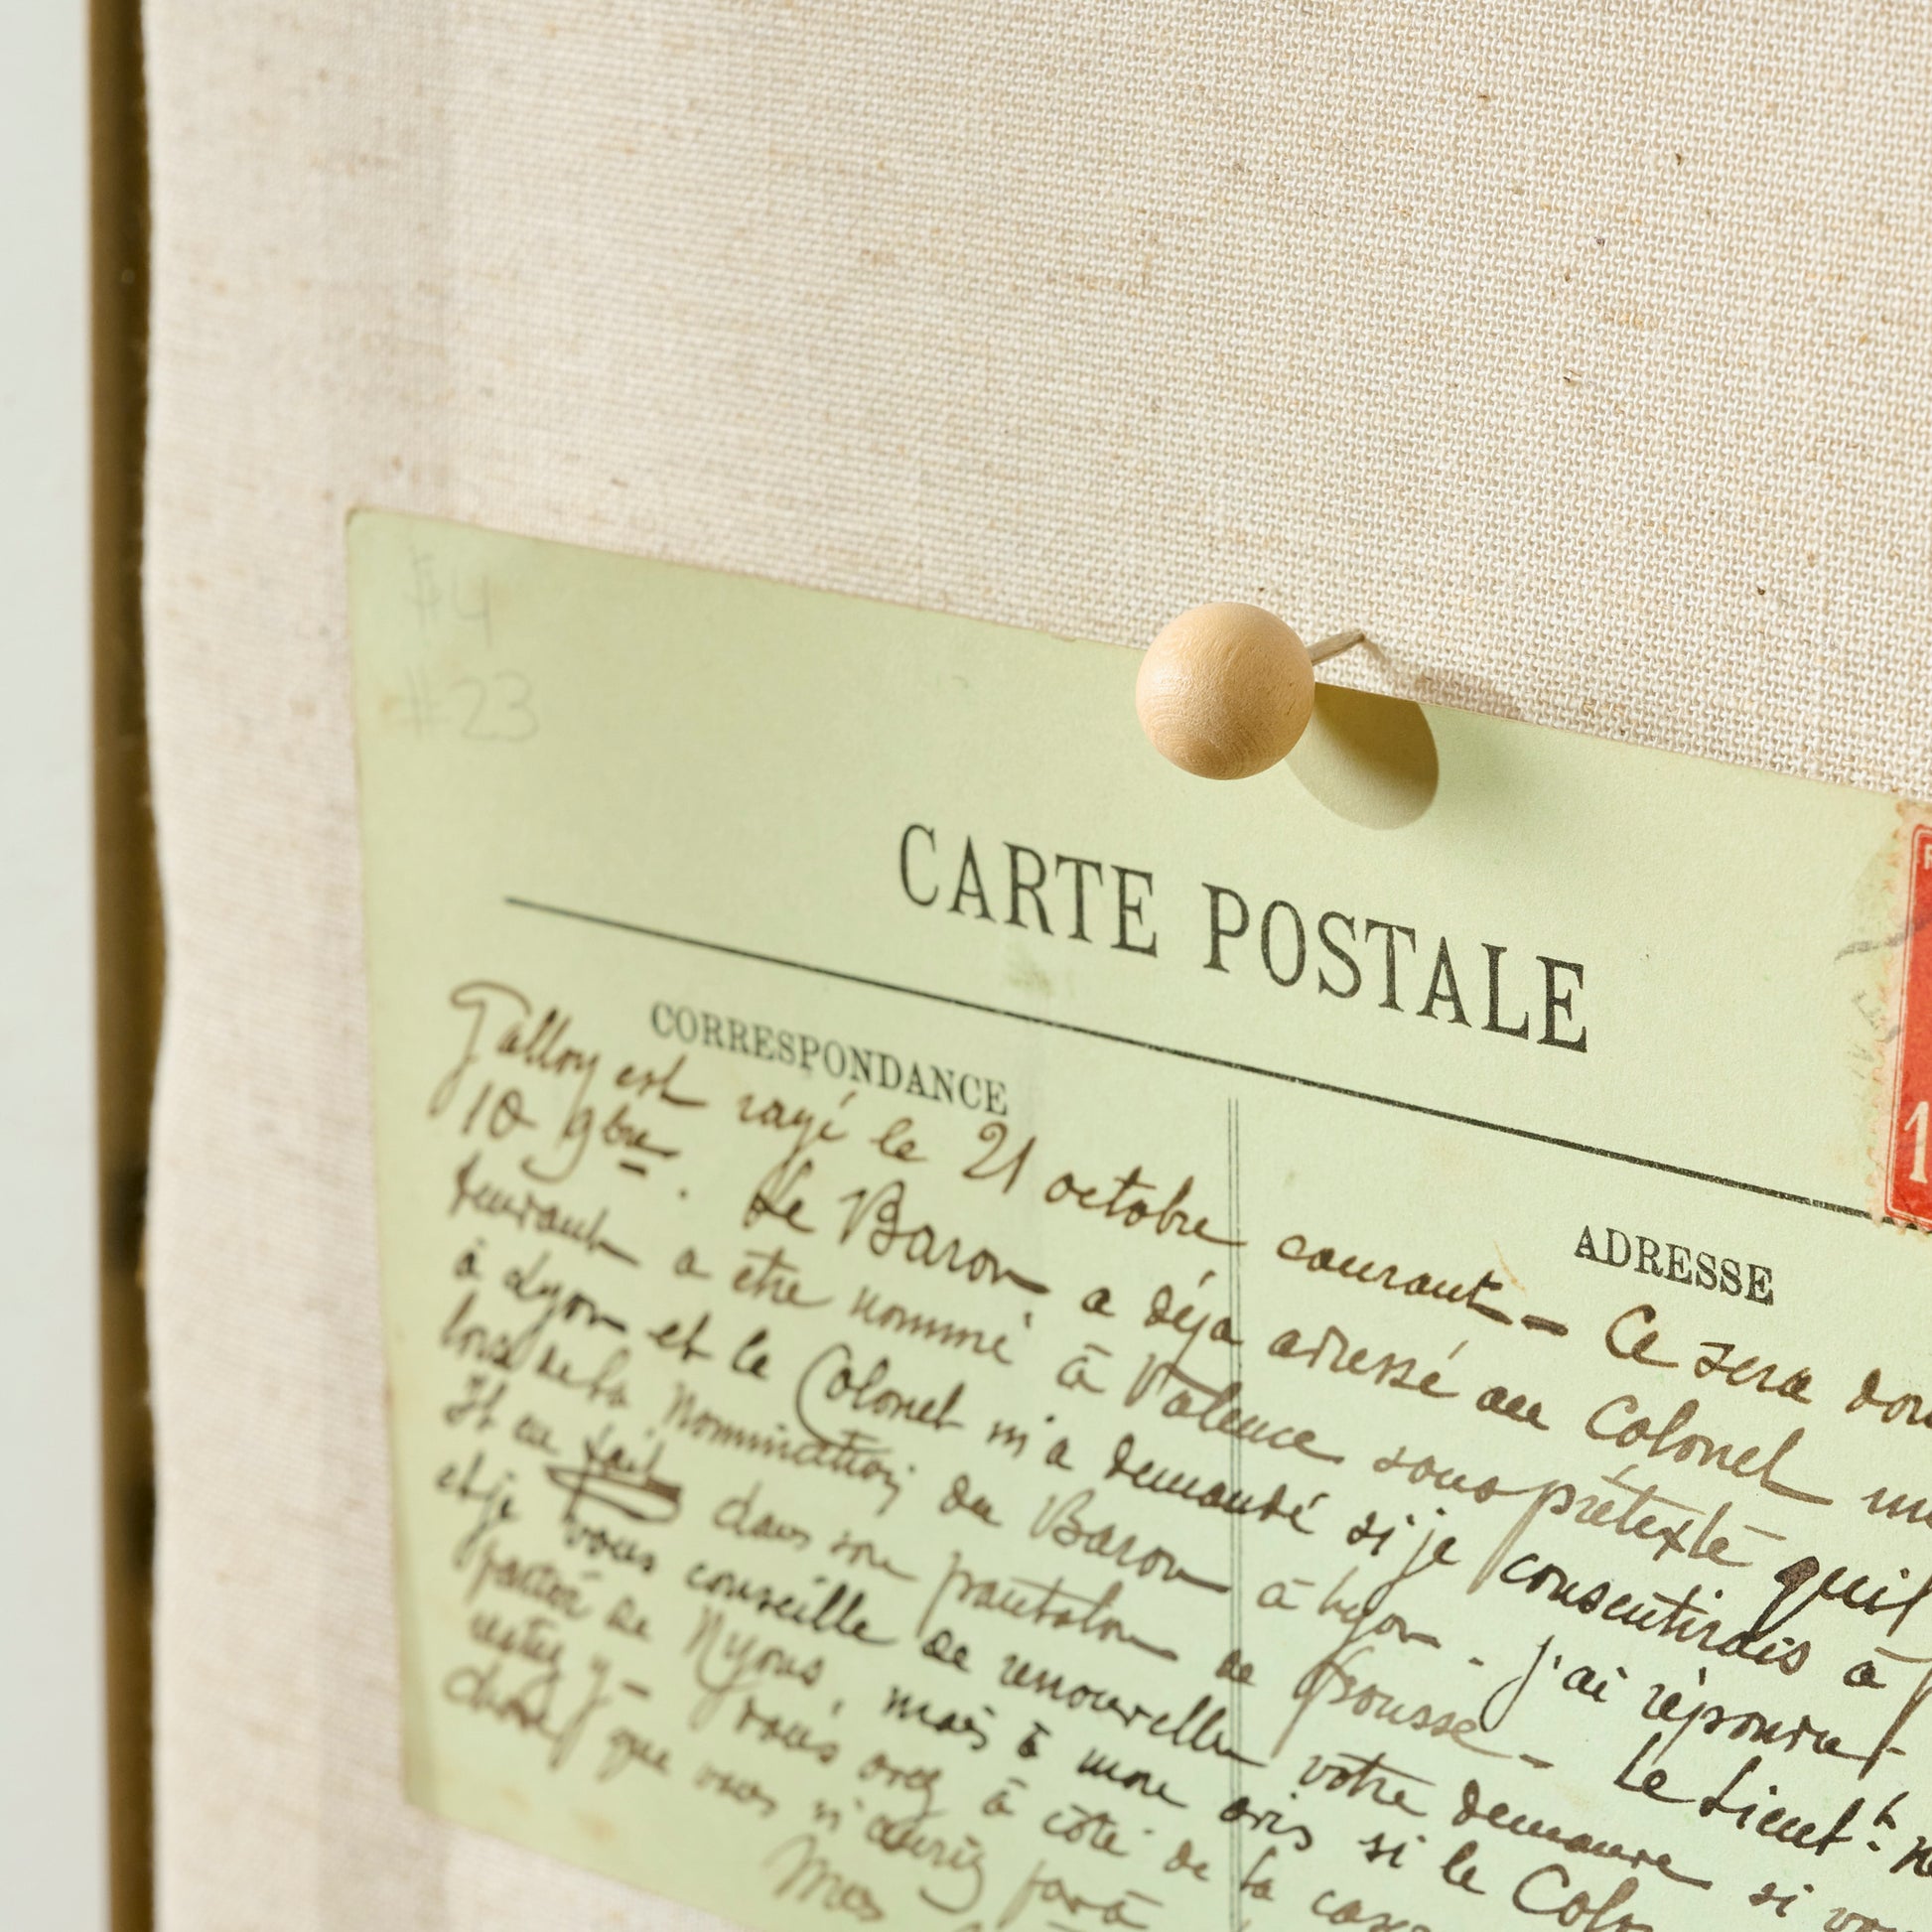 $4
#23
CARTE POSTALE
CORRESPONDANCE
ADRESSE
1
est rayé le 21 octobre courant - Ce sera
10 9bre. Le Baron a déja adressé au Colonel
a être nommé à Valence sous prétexte quil
à Lyon et le Colonel m'a demandé si je consentirais à
lors de la Nomination du Baron à Lyon - j'ai répondu
Il en fait dans son pantalon de frousse - Le Lieut.t
et je vous conseille de renouveller votre demande si
partir de Nyons, mais à mon avis si le
restez y - Vous avez à côté de la
chose que vous n'auriez pas à
Mes